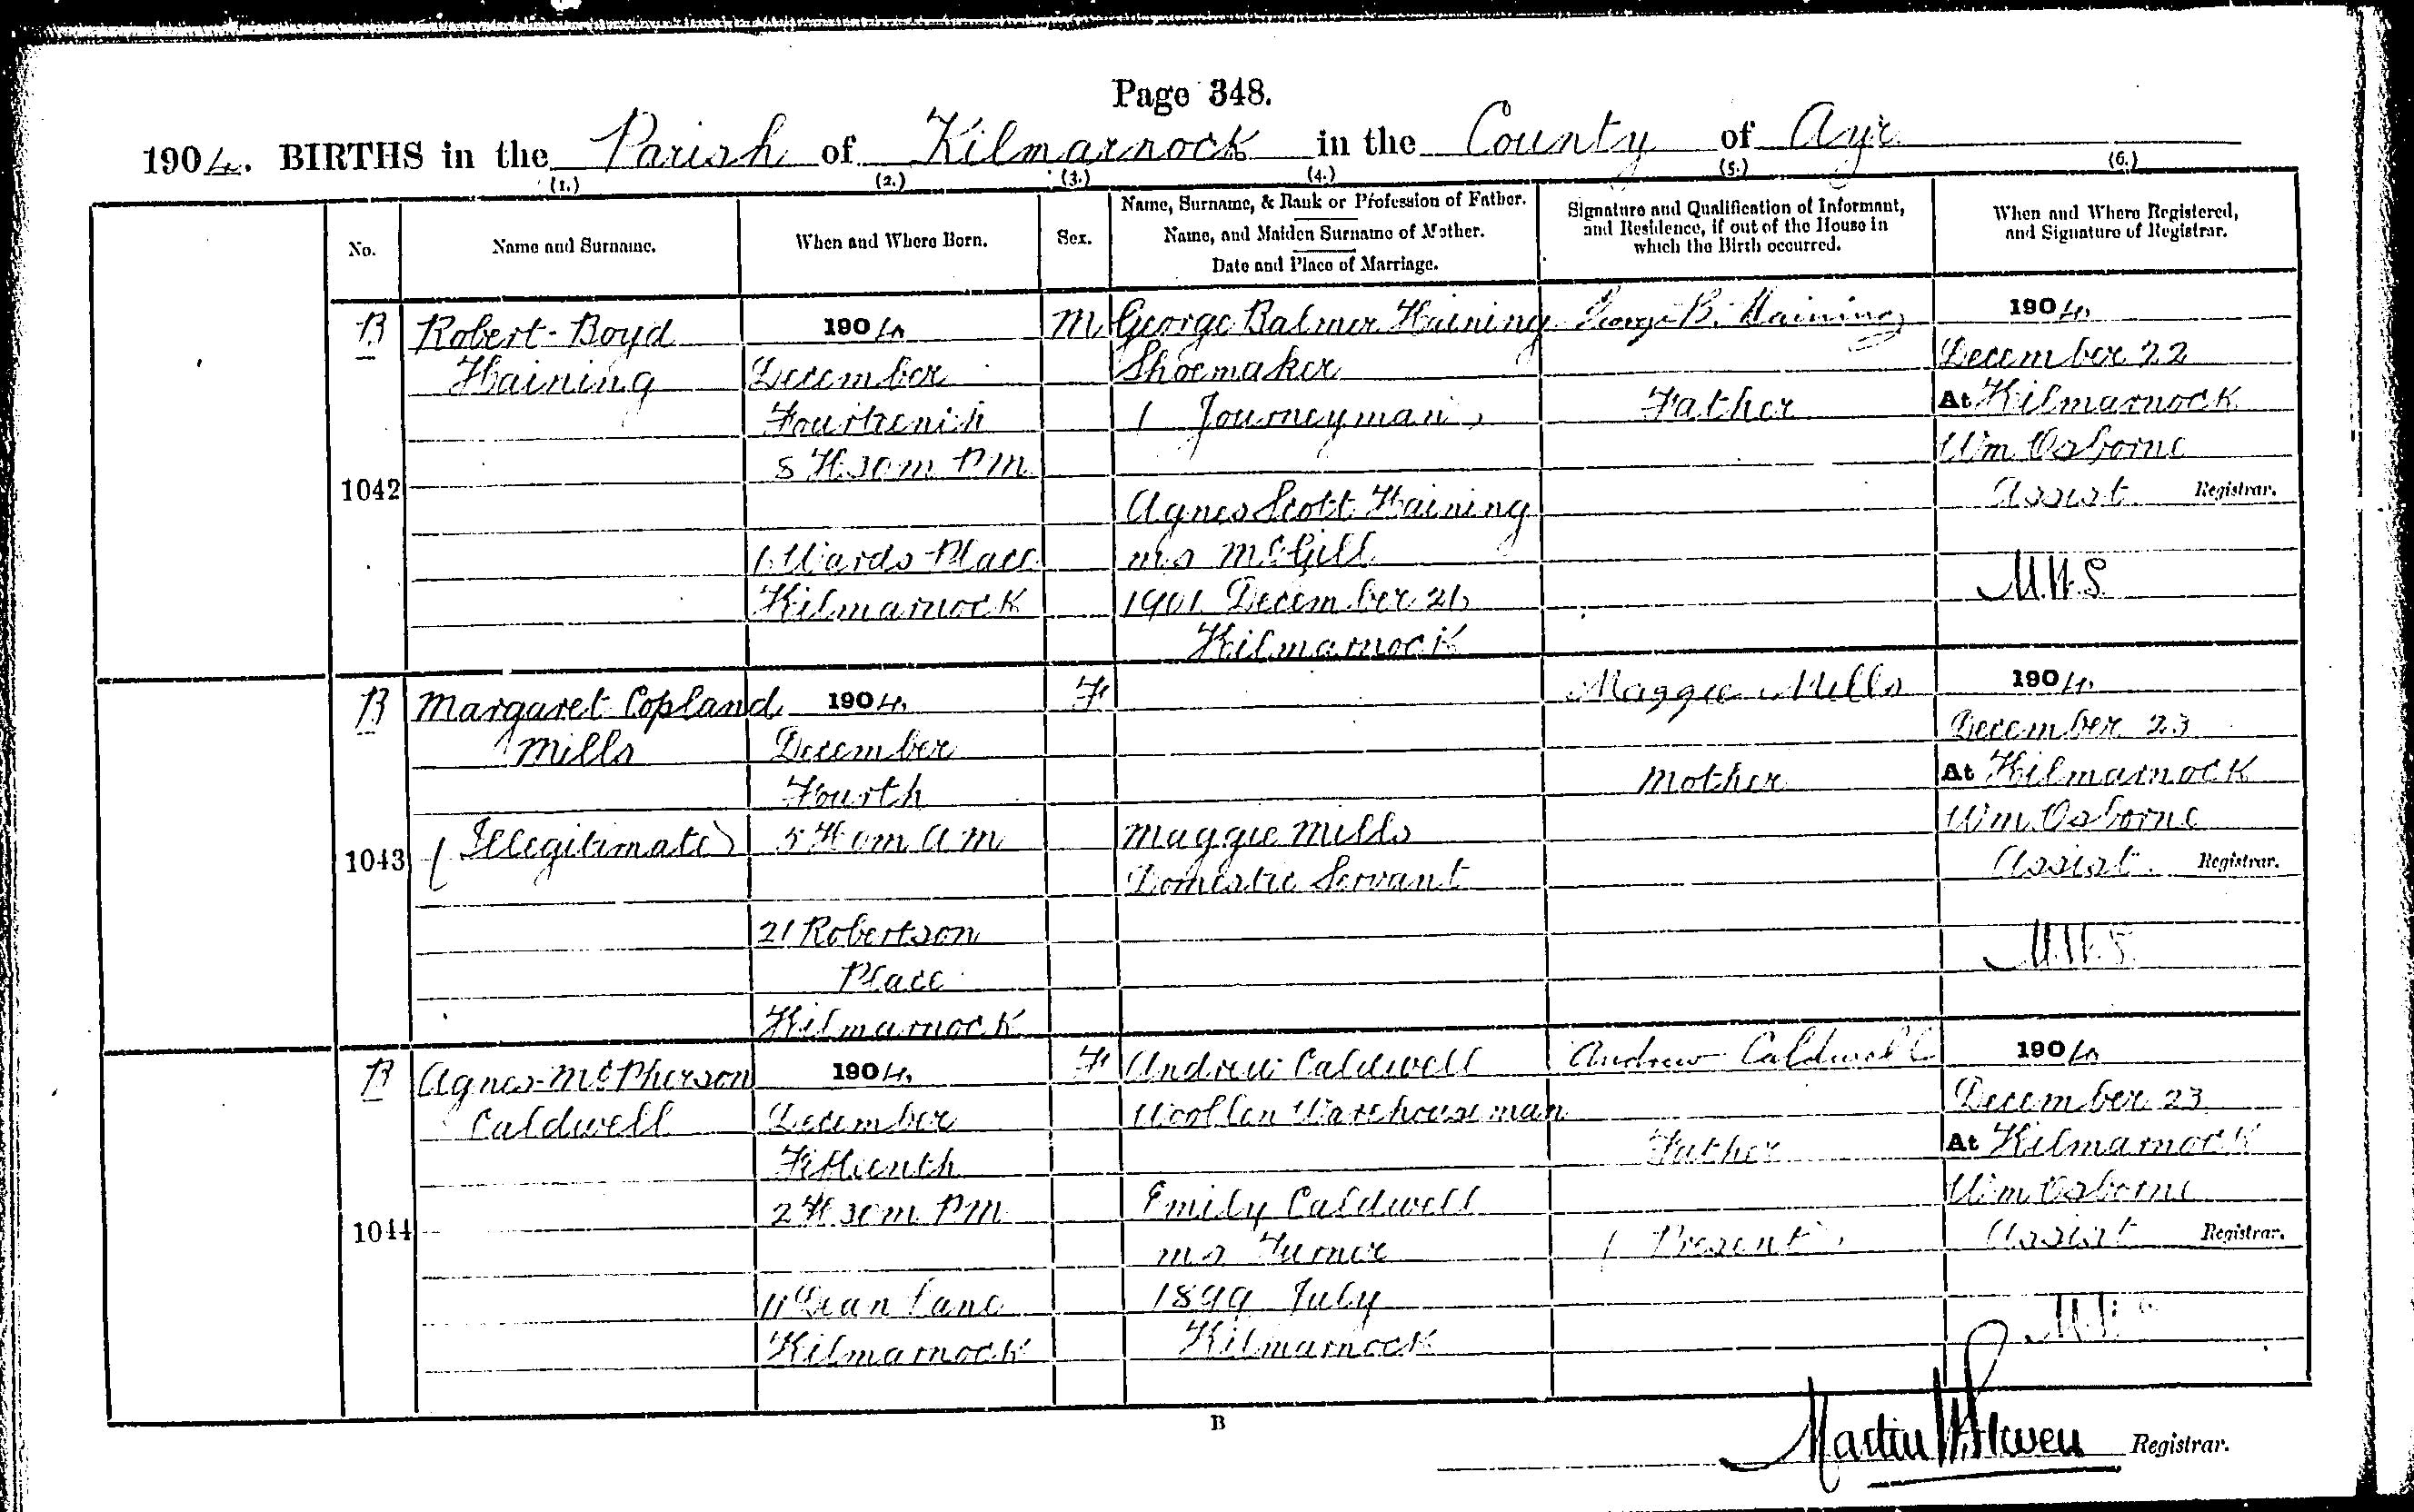 Page 348.
1904. BIRTHS in the Parish of Kilmarnock in the County of Ayr
(1.) (2.) (3.) (4.) (5.) (6.)
No.
Name and Surname.
When and Where Born.
Sex.
Name, Surname, & Rank or Profession of Father.
Name, and Maiden Surname of Mother.
Date and Place of Marriage.
Signature and Qualification of Informant,
and Residence, if out of the House in
which the Birth occurred.
When and Where Registered,
and Signature of Registrar.
B
1042
Robert Boyd
Haining
1904
December
Fourteenth
8 H 30 m PM
1 Wards Place
Kilmarnock
M
George Balmer Haining
Shoemaker
(Journeyman)
Agnes Scott Haining
ms McGill
1901 December 26
Kilmarnock
George B. Haining
Father
1904
December 22
At Kilmarnock
Wm Osborne
Assist Registrar.
M.W.S.
B
1043
Margaret Copland
Mills
(Illegitimate)
1904
December
Fourth
5 H 0 m AM
21 Robertson
Place
Kilmarnock
F
Maggie Mills
Domestic Servant
Maggie Mills
Mother
1904
December 23
At Kilmarnock
Wm Osborne
Assist. Registrar.
M.W.S.
B
1044
Agnes McPherson
Caldwell
1904
December
Fifteenth
2 H 30 m PM
11 Dean Lane
Kilmarnock
F
Andrew Caldwell
Woollen Warehouseman
Emily Caldwell
ms Turner
1899 July
Kilmarnock
Andrew Caldwell
Father
(Present)
1904
December 23
At Kilmarnock
Wm Osborne
Assist Registrar.
B
Martin Registrar.